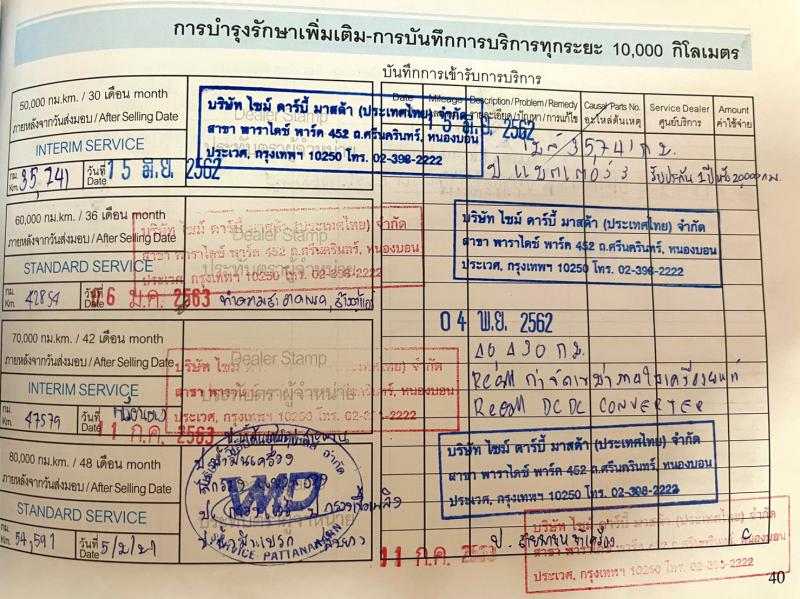 การบำรุงรักษาเพิ่มเติม-การบันทึกการบริการทุกระยะ 10,000 กิโลเมตร
บันทึกการเข้ารับการบริการ
50,000 กม.km. / 30 เดือน month
ภายหลังจากวันส่งมอบ / After Selling Date
INTERIM SERVICE
กม. Km. 35,741 วันที่ Date 15 มิ.ย. 2562
Dealer Stamp
ประทับตราผู้จำหน่าย
บริษัท ไซม์ ดาร์บี้ มาสด้า (ประเทศไทย) จำกัด
สาขา พาราไดซ์ พาร์ค 452 ถ.ศรีนครินทร์, หนองบอน
ประเวศ, กรุงเทพฯ 10250 โทร. 02-398-2222
Date Mileage Description / Problem / Remedy Causal Parts No. Service Dealer Amount
รายละเอียด / ปัญหา / การแก้ไข อะไหล่ต้นเหตุ ศูนย์บริการ ค่าใช้จ่าย
15 มิ.ย. 2562
35,741 ก.ม.
ป. แบตเตอรี่ รับประกัน 1 ปี หรือ 20,000 กม.
60,000 กม.km. / 36 เดือน month
ภายหลังจากวันส่งมอบ / After Selling Date
STANDARD SERVICE
กม. Km. 42854 วันที่ Date 06 ม.ค. 2563
Dealer Stamp
ประทับตราผู้จำหน่าย
บริษัท ไซม์ ดาร์บี้ มาสด้า (ประเทศไทย) จำกัด
สาขา พาราไดซ์ พาร์ค 452 ถ.ศรีนครินทร์, หนองบอน
ประเวศ, กรุงเทพฯ 10250 โทร. 02-398-2222
บริษัท ไซม์ ดาร์บี้ มาสด้า (ประเทศไทย) จำกัด
สาขา พาราไดซ์ พาร์ค 452 ถ.ศรีนครินทร์, หนองบอน
ประเวศ, กรุงเทพฯ 10250 โทร. 02-398-2222
04 พ.ย. 2562
40430 ก.ม.
Recall กำจัดเขม่าภายในเครื่องยนต์
Recall DC DC CONVERTER
70,000 กม.km. / 42 เดือน month
ภายหลังจากวันส่งมอบ / After Selling Date
INTERIM SERVICE
กม. Km. 47579 วันที่ Date 11 ก.ค. 2563
Dealer Stamp
ประทับตราผู้จำหน่าย
บริษัท ไซม์ ดาร์บี้ มาสด้า (ประเทศไทย) จำกัด
สาขา พาราไดซ์ พาร์ค 452 ถ.ศรีนครินทร์, หนองบอน
ประเวศ, กรุงเทพฯ 10250 โทร. 02-398-2222
80,000 กม.km. / 48 เดือน month
ภายหลังจากวันส่งมอบ / After Selling Date
STANDARD SERVICE
กม. Km. 54,591 วันที่ Date 5/2/21
ป. น้ำมันเครื่อง
ป. กรองเชื้อเพลิง
ป. น้ำมันเบรก
SERVICE PATTANAKARN
บริษัท ไซม์ ดาร์บี้ มาสด้า (ประเทศไทย) จำกัด
สาขา พาราไดซ์ พาร์ค 452 ถ.ศรีนครินทร์, หนองบอน
ประเวศ, กรุงเทพฯ 10250 โทร. 02-398-2222
11 ก.ค. 2563
บริษัท ไซม์ ดาร์บี้ มาสด้า (ประเทศไทย) จำกัด
สาขา พาราไดซ์ พาร์ค 452 ถ.ศรีนครินทร์, หนองบอน
ประเวศ, กรุงเทพฯ 10250 โทร. 02-398-2222
40